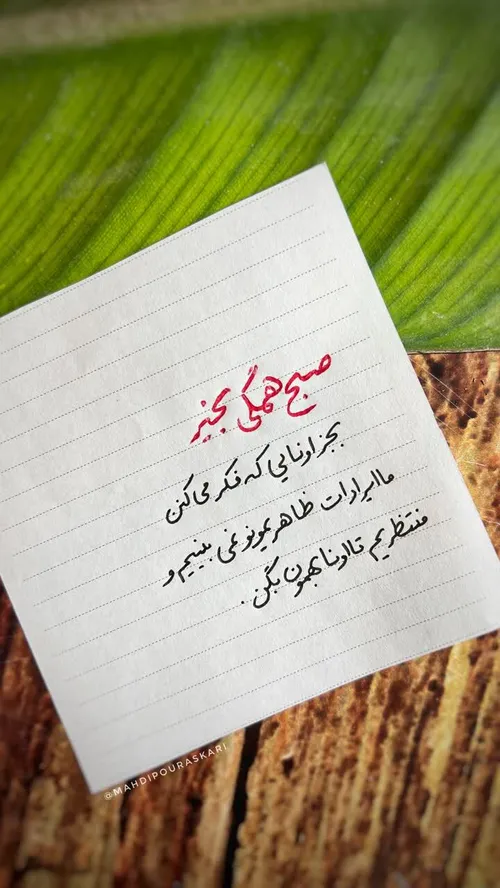 صبح همگی بخیر
بجز اونایی که فکر می‌کنن
ما ایرادات ظاهریمونو نمی بینیم و
منتظریم تا اونا بهمون بگن .
@MAHDIPOURASKARI